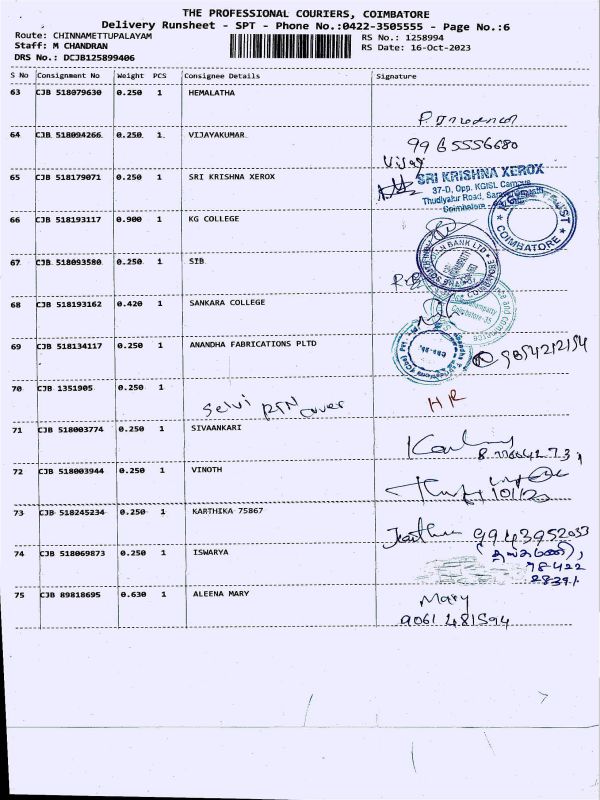 THE PROFESSIONAL COURIERS, COIMBATORE
Delivery Runsheet - SPT - Phone No.:0422-3505555 - Page No.:6
Route: CHINNAMETTUPALAYAM RS No.: 1258994
Staff: M CHANDRAN RS Date: 16-Oct-2023
DRS No.: DCJB125899406
S No Consignment No Weight PCS Consignee Details Signature
63 CJB 518079630 0.250 1 HEMALATHA
64 CJB 518094266 0.250 1 VIJAYAKUMAR 9965556680
Vijay
65 CJB 518179071 0.250 1 SRI KRISHNA XEROX SRI KRISHNA XEROX
37-D, Opp. KGISL Campus
Thudiyalur Road,
Coimbatore
66 CJB 518193117 0.900 1 KG COLLEGE COIMBATORE
67 CJB 518093580 0.250 1 SIB
68 CJB 518193162 0.420 1 SANKARA COLLEGE
69 CJB 518134117 0.250 1 ANANDHA FABRICATIONS PLTD 9854212154
70 CJB 1351905 0.250 1 Selvi RTN cover HR
71 CJB 518003774 0.250 1 SIVAANKARI
72 CJB 518003944 0.250 1 VINOTH
73 CJB 518245234 0.250 1 KARTHIKA 75867 9943952033
74 CJB 518069873 0.250 1 ISWARYA 78422
28391
75 CJB 89818695 0.630 1 ALEENA MARY Mary
9061481594